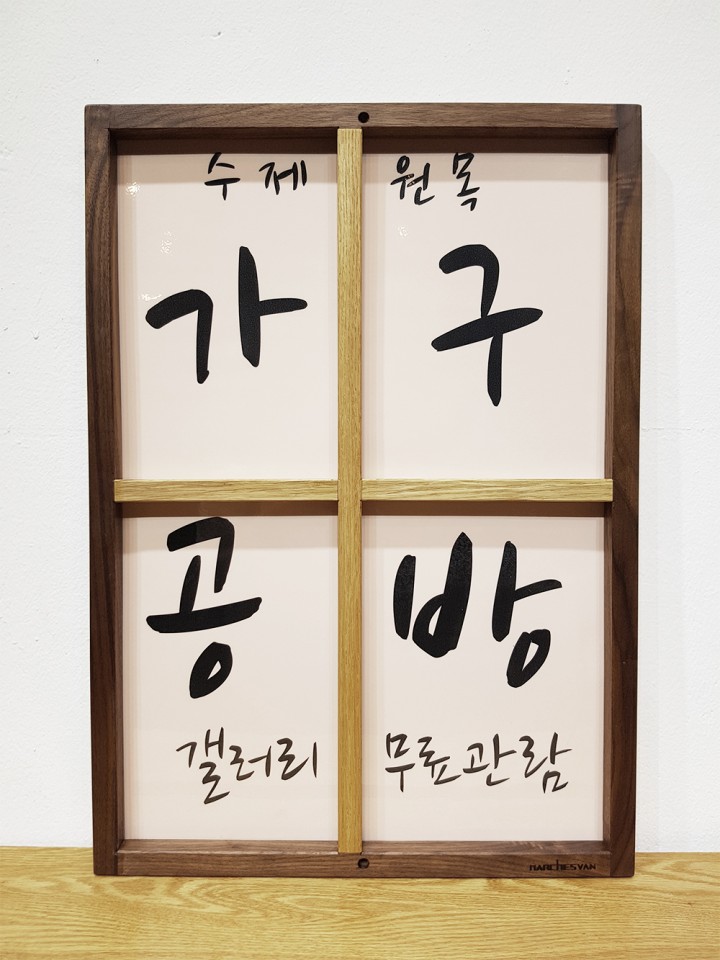 수제 원목
가구
공방
갤러리 무료관람
MARCHESVAN